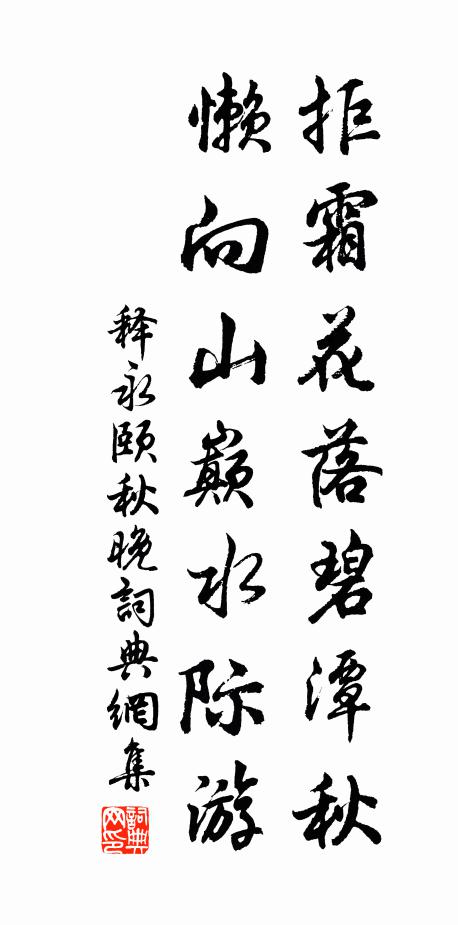 拒霜花落碧潭秋
懒向山巅水际游
释永颐秋晚词典網集
詞典网印